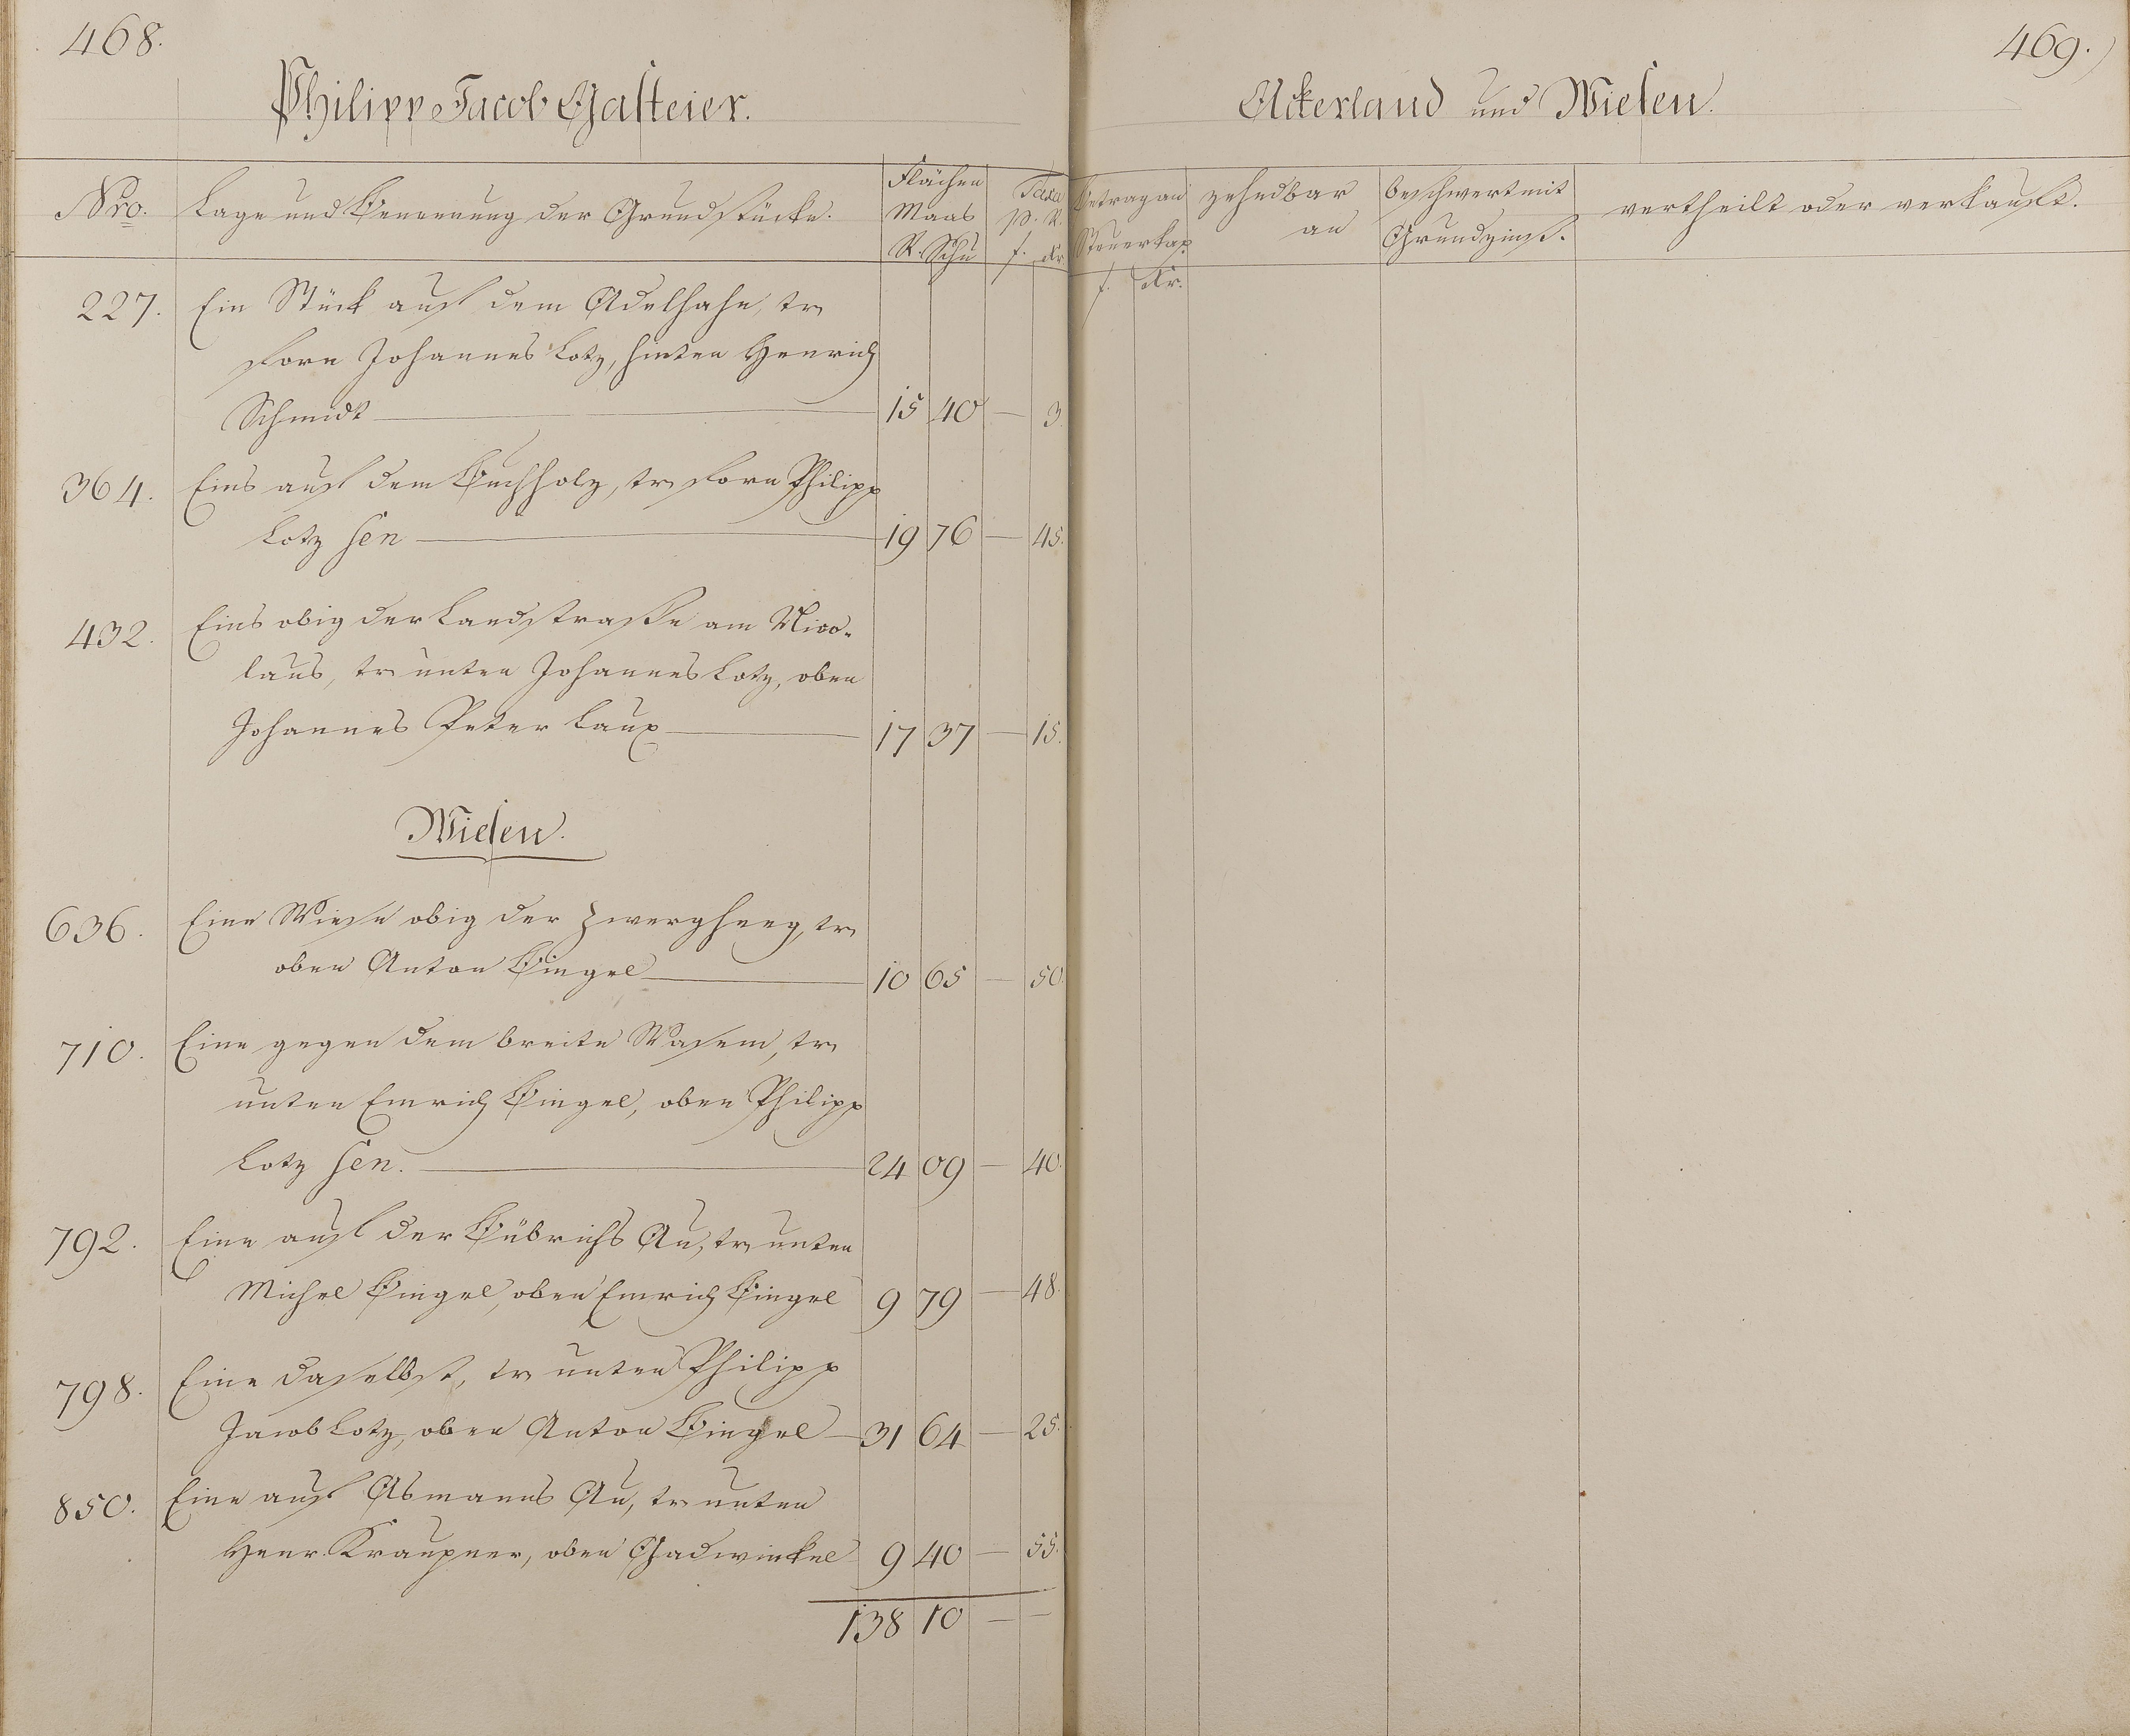 468.
469.
Philipp Jacob Gasteier.
Ackerland und Wiesen.
Nro.
Lage und Benennung der Grundstücke.
Flächen
Maas
R. Schu
Taxa
p. R.
f. Kr
Betrag an
Steuerkap.
f. Kr.
zehndbar
an
beschwert mit
Grundzinß.
vertheilt oder verkauft.
227. Ein Stück auf dem Adelhahn, tr
forn Johannes Lotz, hinten Henrich
Schmidt — 15 40 — 3.
364. Eins auf dem Buchholz, tr forn Philipp
Lotz sen — 19 76 — 45.
432. Eins obig der Landstraße am Nico-
laus, tr unten Johannes Lotz, oben
Johannes Peter Laux — 17 37 — 15.
Wiesen.
636. Eine Wiese obig der Zwergheeg, tr
oben Anton Bingel — 10 65 — 50.
710. Eine gegen dem breite Wasem, tr
unten Emrich Bingel, oben Philipp
Lotz sen. — 24 09 — 40.
792. Eine auf der Bübrichs Au, tr unten
Michel Bingel, oben Emrich Bingel 9 79 — 48.
798. Eine daselbst, tr unten Philipp
Jacob Lotz, oben Anton Bingel — 31 64 — 25.
850. Eine auf Asmanns Au, tr unten
Henr. Kraupner, oben Gadwinkel 9 40 — 55.
138 10 — —